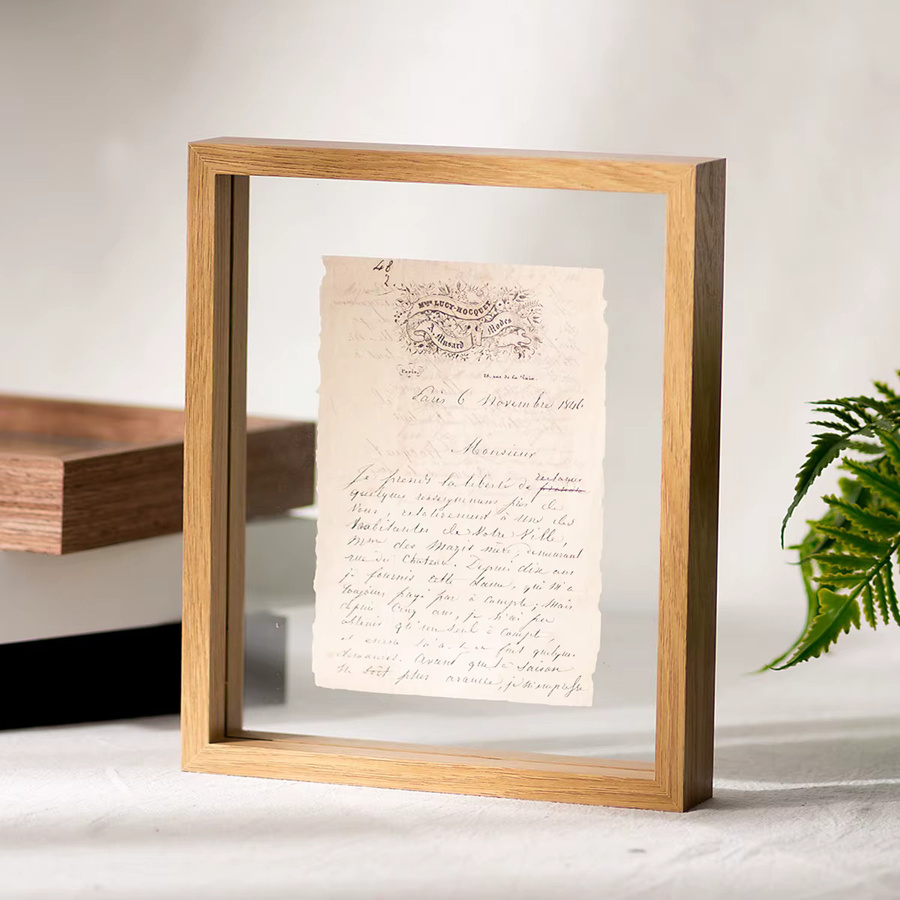 48
Mme LUCY-HOCQUET
A. Musard Modes
Paris,
Paris 6 Novembre 1846
Monsieur
Je prends la liberté de
quelques renseignemens près de
Vous, relativement à une des
habitantes de Notre Ville,
Mme des Mazis née, demeurant
rue du Château. Depuis dix ans
je fournis cette Dame, qui m'a
toujours payé par à compte; Mais
depuis Cinq ans, je n'ai pu
obtenir qu'un seul à compte,
fait quelques
Avant que la saison
ne soit plus avancée, je m'empresse